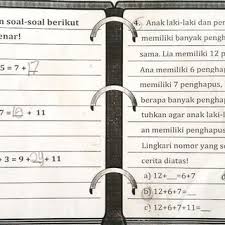 n soal-soal berikut
enar!
5 = 7 + 17
7 = + 11
+ 3 = 9 + + 11
4. Anak laki-laki dan per
memiliki banyak pengh
sama. Lia memiliki 12 p
Ana memiliki 6 pengha
memiliki 7 penghapus,
berapa banyak penghap
tuhkan agar anak laki-l
an memiliki penghapus
Lingkari nomor yang s
cerita diatas!
a) 12+__=6+7
b) 12+6+7=__
c) 12+6+7+11=